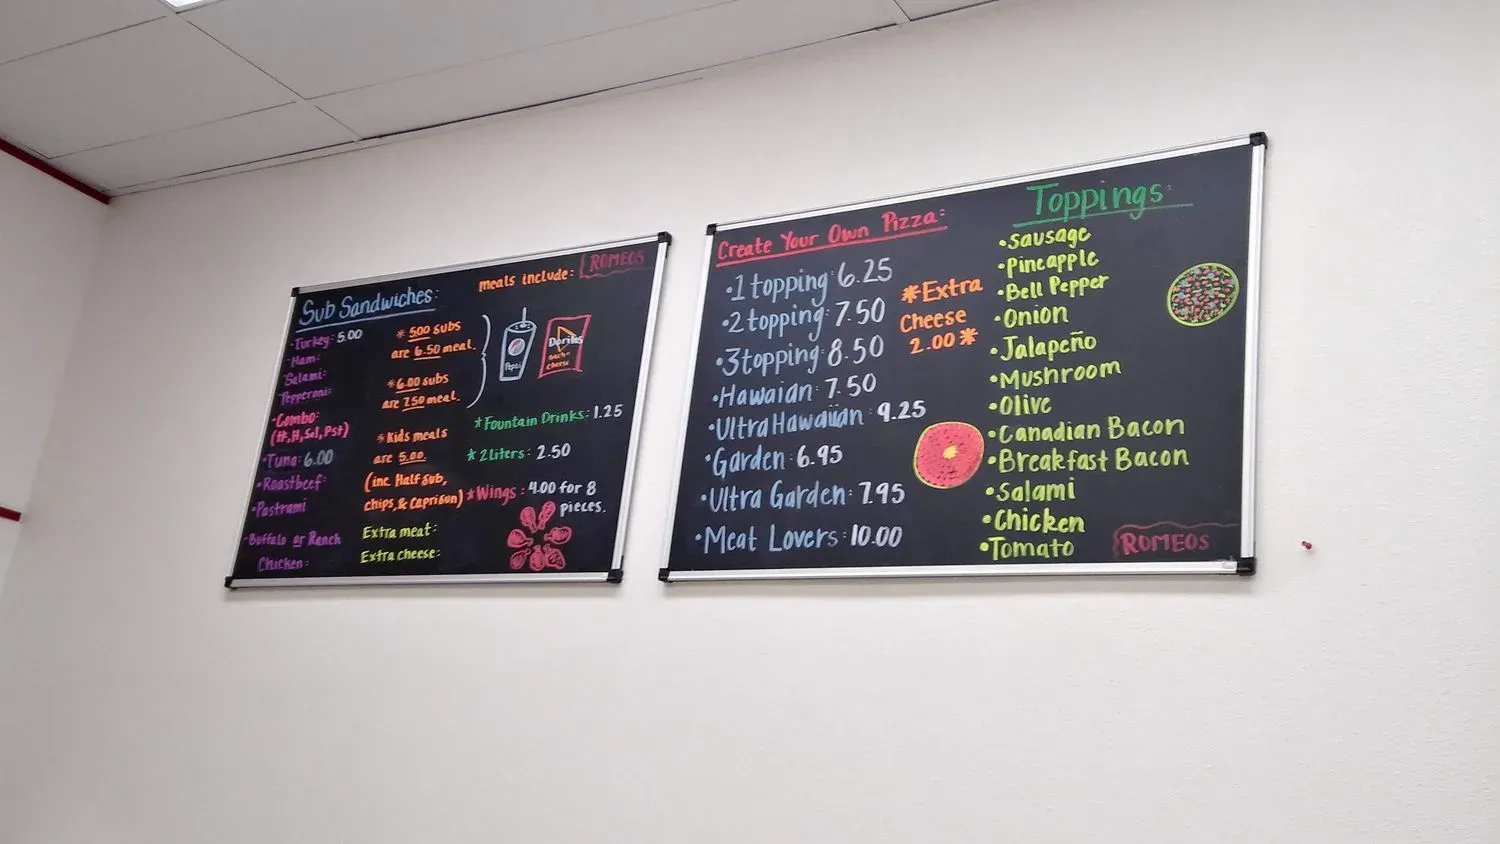 Sub Sandwiches:
• Turkey: 5.00
• Ham:
• Salami:
• Pepperoni:
• Combo:
Tuna: 6.00
• Roastbeef:
• Pastrami
• Buffalo or Ranch
Chicken:
meals include:
ROMEOS
* 5.00 subs
are 6.50 meal.
* 6.00 subs
are 7.50 meal.
Pepsi
Doritos
nacho
cheese
* Kids meals
are 5.00.
(inc. Half Sub,
chips, & Caprisun)
Extra meat:
Extra cheese:
* Fountain Drinks: 1.25
* 2 Liters: 2.50
* Wings: 4.00 for 8
pieces.
Create Your Own Pizza:
• 1 topping: 6.25
• 2 topping: 7.50
• 3 topping: 8.50
• Hawaian: 7.50
• Ultra Hawaiian: 9.25
• Garden: 6.95
• Ultra Garden: 7.95
• Meat Lovers: 10.00
*Extra
Cheese
2.00*
Toppings:
• Sausage
• Pineapple
• Bell Pepper
• Onion
• Jalapeño
• Mushroom
• Olive
• Canadian Bacon
• Breakfast Bacon
• Salami
• Chicken
• Tomato
ROMEOS